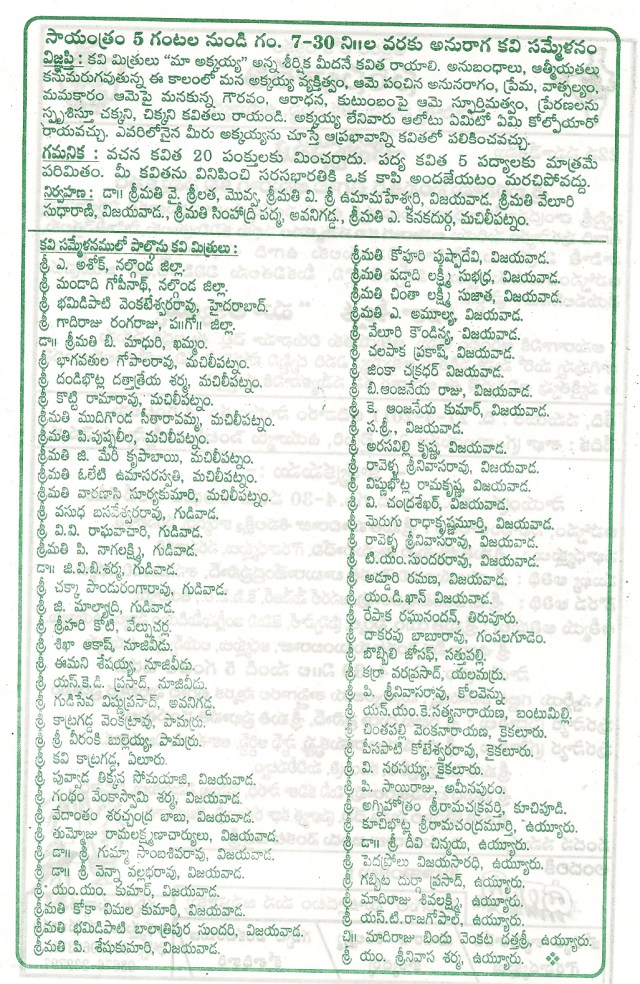 సాయంత్రం 5 గంటల నుండి గం. 7-30 ని॥ల వరకు అనురాగ కవి సమ్మేళనం
విజ్ఞప్తి : కవి మిత్రులు "మా అక్కయ్య" అన్న శీర్షిక మీదనే కవిత రాయాలి. అనుబంధాలు, ఆత్మీయతలు
కనుమరుగవుతున్న ఈ కాలంలో మన అక్కయ్య వ్యక్తిత్వం, ఆమె పంచిన అనునరాగం, ప్రేమ, వాత్సల్యం,
మమకారం ఆమెపై మనకున్న గౌరవం, ఆరాధన, కుటుంబంపై ఆమె స్ఫూర్తిమత్వం, ప్రేరణలను
స్పృశిస్తూ చక్కని, చిక్కని కవితలు రాయండి. అక్కయ్య లేనివారు ఆలోటు ఏమిటో ఏమి కోల్పోయారో
రాయవచ్చు. ఎవరిలోనైన మీరు అక్కయ్యను చూస్తే ఆప్రభావాన్ని కవితలో పలికించవచ్చు.
గమనిక : వచన కవిత 20 పంక్తులకు మించరాదు. పద్య కవిత 5 పద్యాలకు మాత్రమే
పరిమితం. మీ కవితను వినిపించి సరసభారతికి ఒక కాపి అందజేయటం మరచిపోవద్దు.
నిర్వహణ : డా॥ శ్రీమతి వై. శ్రీలత, మొవ్వ, శ్రీమతి వి. శ్రీ ఉమామహేశ్వరి, విజయవాడ. శ్రీమతి వేలూరి
సుధారాణి, విజయవాడ., శ్రీమతి సింహాద్రి పద్మ, అవనిగడ్డ., శ్రీమతి ఎ. కనకదుర్గ, మచిలీపట్నం.
కవి సమ్మేళనములో పాల్గొను కవి మిత్రులు :
శ్రీ ఎ. అశోక్, నల్గొండ జిల్లా.
శ్రీ మండాది గోపీనాథ్, నల్గొండ జిల్లా.
శ్రీ భమిడిపాటి వెంకటేశ్వరరావు, హైదరాబాద్.
శ్రీ గాదిరాజు రంగరాజు, ప॥గో॥ జిల్లా.
డా॥ శ్రీమతి బి. మాధురి, ఖమ్మం.
శ్రీ భాగవతుల గోపాలరావు, మచిలీపట్నం.
శ్రీ దండిభొట్ల దత్తాత్రేయ శర్మ, మచిలీపట్నం.
శ్రీ కొట్టి రామారావు, మచిలీపట్నం.
శ్రీమతి ముదిగొండ సీతారావమ్మ, మచిలీపట్నం.
శ్రీమతి పి.పుష్పలీల, మచిలీపట్నం.
శ్రీమతి జి. మేరీ కృపాబాయి, మచిలీపట్నం.
శ్రీమతి ఓలేటి ఉమాసరస్వతి, మచిలీపట్నం.
శ్రీమతి వారణాసి సూర్యకుమారి, మచిలీపట్నం.
శ్రీ వసుధ బసవేశ్వరరావు, గుడివాడ.
శ్రీ వి.వి. రాఘవాచారి, గుడివాడ.
శ్రీమతి పి. నాగలక్ష్మి, గుడివాడ.
డా॥ జి.వి.బి.శర్మ, గుడివాడ.
శ్రీ చక్కా పాండురంగారావు, గుడివాడ.
శ్రీ జి. మాల్యాద్రి, గుడివాడ.
శ్రీ శ్రీహరి కోటి, వేల్పుచర్ల.
శ్రీ శిఖా ఆకాష్, నూజివీడు.
శ్రీ ఈమని శేషయ్య, నూజివీడు.
శ్రీ యస్.కె.డి. ప్రసాద్, నూజివీడు.
శ్రీ గుడిసేవ విష్ణుప్రసాద్, అవనిగడ్డ.
శ్రీ కాట్రగడ్డ వెంకట్రావు, పామర్రు.
శ్రీ శ్రీ వీరంకి బుల్లెయ్య, పామర్రు.
శ్రీ కవి కాట్రగడ్డ, ఏలూరు.
శ్రీ పువ్వాడ తిక్కన సోమయాజి, విజయవాడ.
శ్రీ గంధం వెంకాస్వామి శర్మ, విజయవాడ.
శ్రీ వేదాంతం శరశ్చంద్ర బాబు, విజయవాడ.
శ్రీ తుమ్మోజు రామలక్ష్మణాచార్యులు, విజయవాడ.
శ్రీ డా॥ శ్రీ గుమ్మా సాంబశివరావు, విజయవాడ.
శ్రీ డా॥ శ్రీ వెన్నా వల్లభరావు, విజయవాడ.
శ్రీ యం.యం. కుమార్, విజయవాడ.
శ్రీమతి కోకా విమల కుమారి, విజయవాడ.
శ్రీమతి భమిడిపాటి బాలాత్రిపుర సుందరి, విజయవాడ.
శ్రీమతి పి. శేషుకుమారి, విజయవాడ.
శ్రీమతి కోపూరి పుష్పాదేవి, విజయవాడ.
శ్రీమతి వడ్డాది లక్ష్మీ సుభద్ర, విజయవాడ.
శ్రీమతి చింతా లక్ష్మీ సుజాత, విజయవాడ.
శ్రీమతి ఎ. అమూల్య, విజయవాడ.
శ్రీ వేలూరి కౌండిన్య, విజయవాడ.
శ్రీ చలపాక ప్రకాష్, విజయవాడ.
శ్రీ జింకా చక్రధర్ విజయవాడ.
శ్రీ బి.ఆంజనేయ రాజు, విజయవాడ.
శ్రీ కె. ఆంజనేయ కుమార్, విజయవాడ.
శ్రీ స.శ్రీ., విజయవాడ.
శ్రీ అరసవిల్లి కృష్ణ, విజయవాడ.
శ్రీ రావెళ్ళ శ్రీనివాసరావు, విజయవాడ.
శ్రీ విష్ణుభొట్ల రామకృష్ణ, విజయవాడ.
శ్రీ వి. చంద్రశేఖర్, విజయవాడ.
శ్రీ మెరుగు రాధాకృష్ణమూర్తి, విజయవాడ.
శ్రీ రావెళ్ళ శ్రీనివాసరావు, విజయవాడ.
శ్రీ టి.యం.సుందరరావు, విజయవాడ.
శ్రీ అడ్డూరి రమణ, విజయవాడ.
శ్రీ యం.డి.ఖాన్ విజయవాడ.
శ్రీ రేపాక రఘునందన్, తిరువూరు.
శ్రీ దాకరపు బాబూరావు, గంపలగూడెం.
శ్రీ బొబ్బిలి జోసఫ్, సత్తుపల్లి.
శ్రీ కర్రా వరప్రసాద్, యలమర్రు.
శ్రీ పి. శ్రీనివాసరావు, కోలవెన్ను.
శ్రీ యన్.యం.కె.సత్యనారాయణ, బంటుమిల్లి.
శ్రీ చింతపల్లి వెంకనారాయణ, కైకలూరు.
శ్రీ పీసపాటి కోటేశ్వరరావు, కైకలూరు.
శ్రీ వి. నరసయ్య, కైకలూరు.
శ్రీ పి. సాయిరాజు, అమీనపురం.
శ్రీ అగ్నిహోత్రం శ్రీరామచక్రవర్తి, కూచిపూడి.
శ్రీ కూచిభొట్ల శ్రీరామచంద్రమూర్తి, ఉయ్యూరు.
శ్రీ డా॥ శ్రీ దీవి చిన్మయ, ఉయ్యూరు.
శ్రీ పెదప్రోలు విజయసారధి, ఉయ్యూరు.
శ్రీ గబ్బిట దుర్గా ప్రసాద్, ఉయ్యూరు.
శ్రీ మాదిరాజు శివలక్ష్మి, ఉయ్యూరు.
శ్రీ యస్.టి.రాజగోపాల్, ఉయ్యూరు.
చి॥ మాదిరాజు బిందు వెంకట దత్తశ్రీ, ఉయ్యూరు.
శ్రీ యం. శ్రీనివాస శర్మ, ఉయ్యూరు.